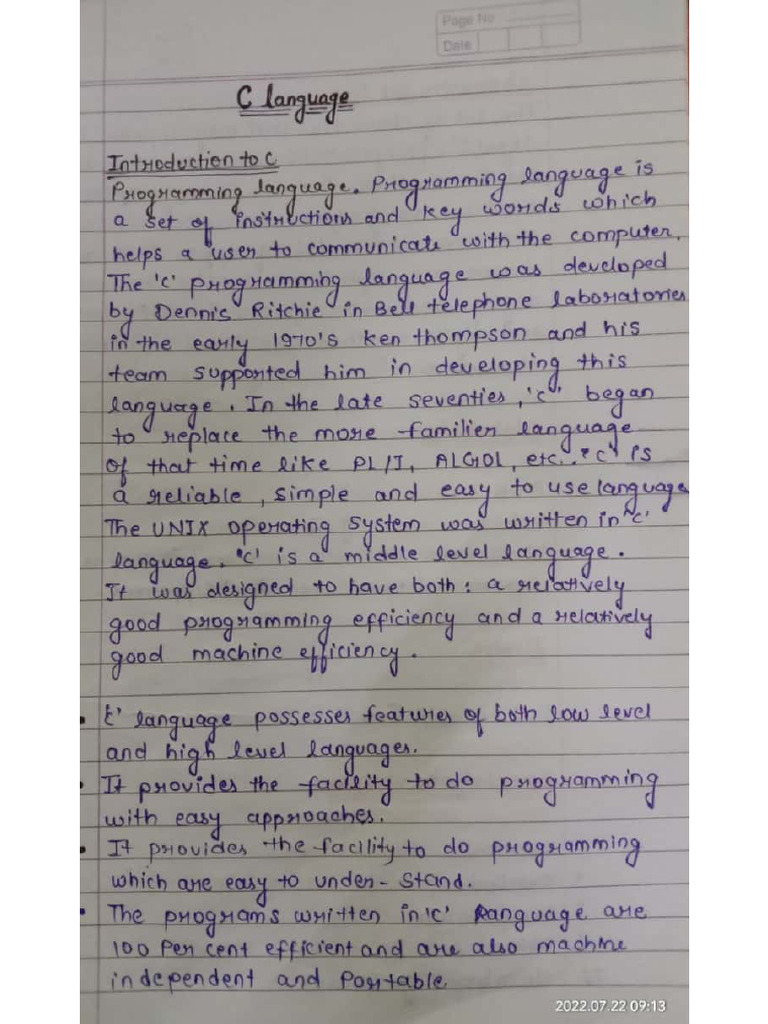 Page No
Date
C language
Introduction to C
Programming language. Programming language is
a set of instructions and key words which
helps a user to communicate with the computer.
The 'C' programming language was developed
by Dennis Ritchie in Bell telephone laboratories
in the early 1970's Ken thompson and his
team supported him in developing this
language. In the late seventies, 'C' began
to replace the more familier language
of that time like PL/I, ALGOL, etc. 'C' is
a reliable, simple and easy to use language
The UNIX operating system was written in 'C'
language. 'C' is a middle level language.
It was designed to have both: a relatively
good programming efficiency and a relatively
good machine efficiency.
'C' language possesses features of both low level
and high level languages.
It provides the facility to do programming
with easy approaches.
It provides the facility to do programming
which are easy to under-stand.
The programs written in 'C' language are
100 Per cent efficient and are also machine
independent and Portable.
2022.07.22 09:13